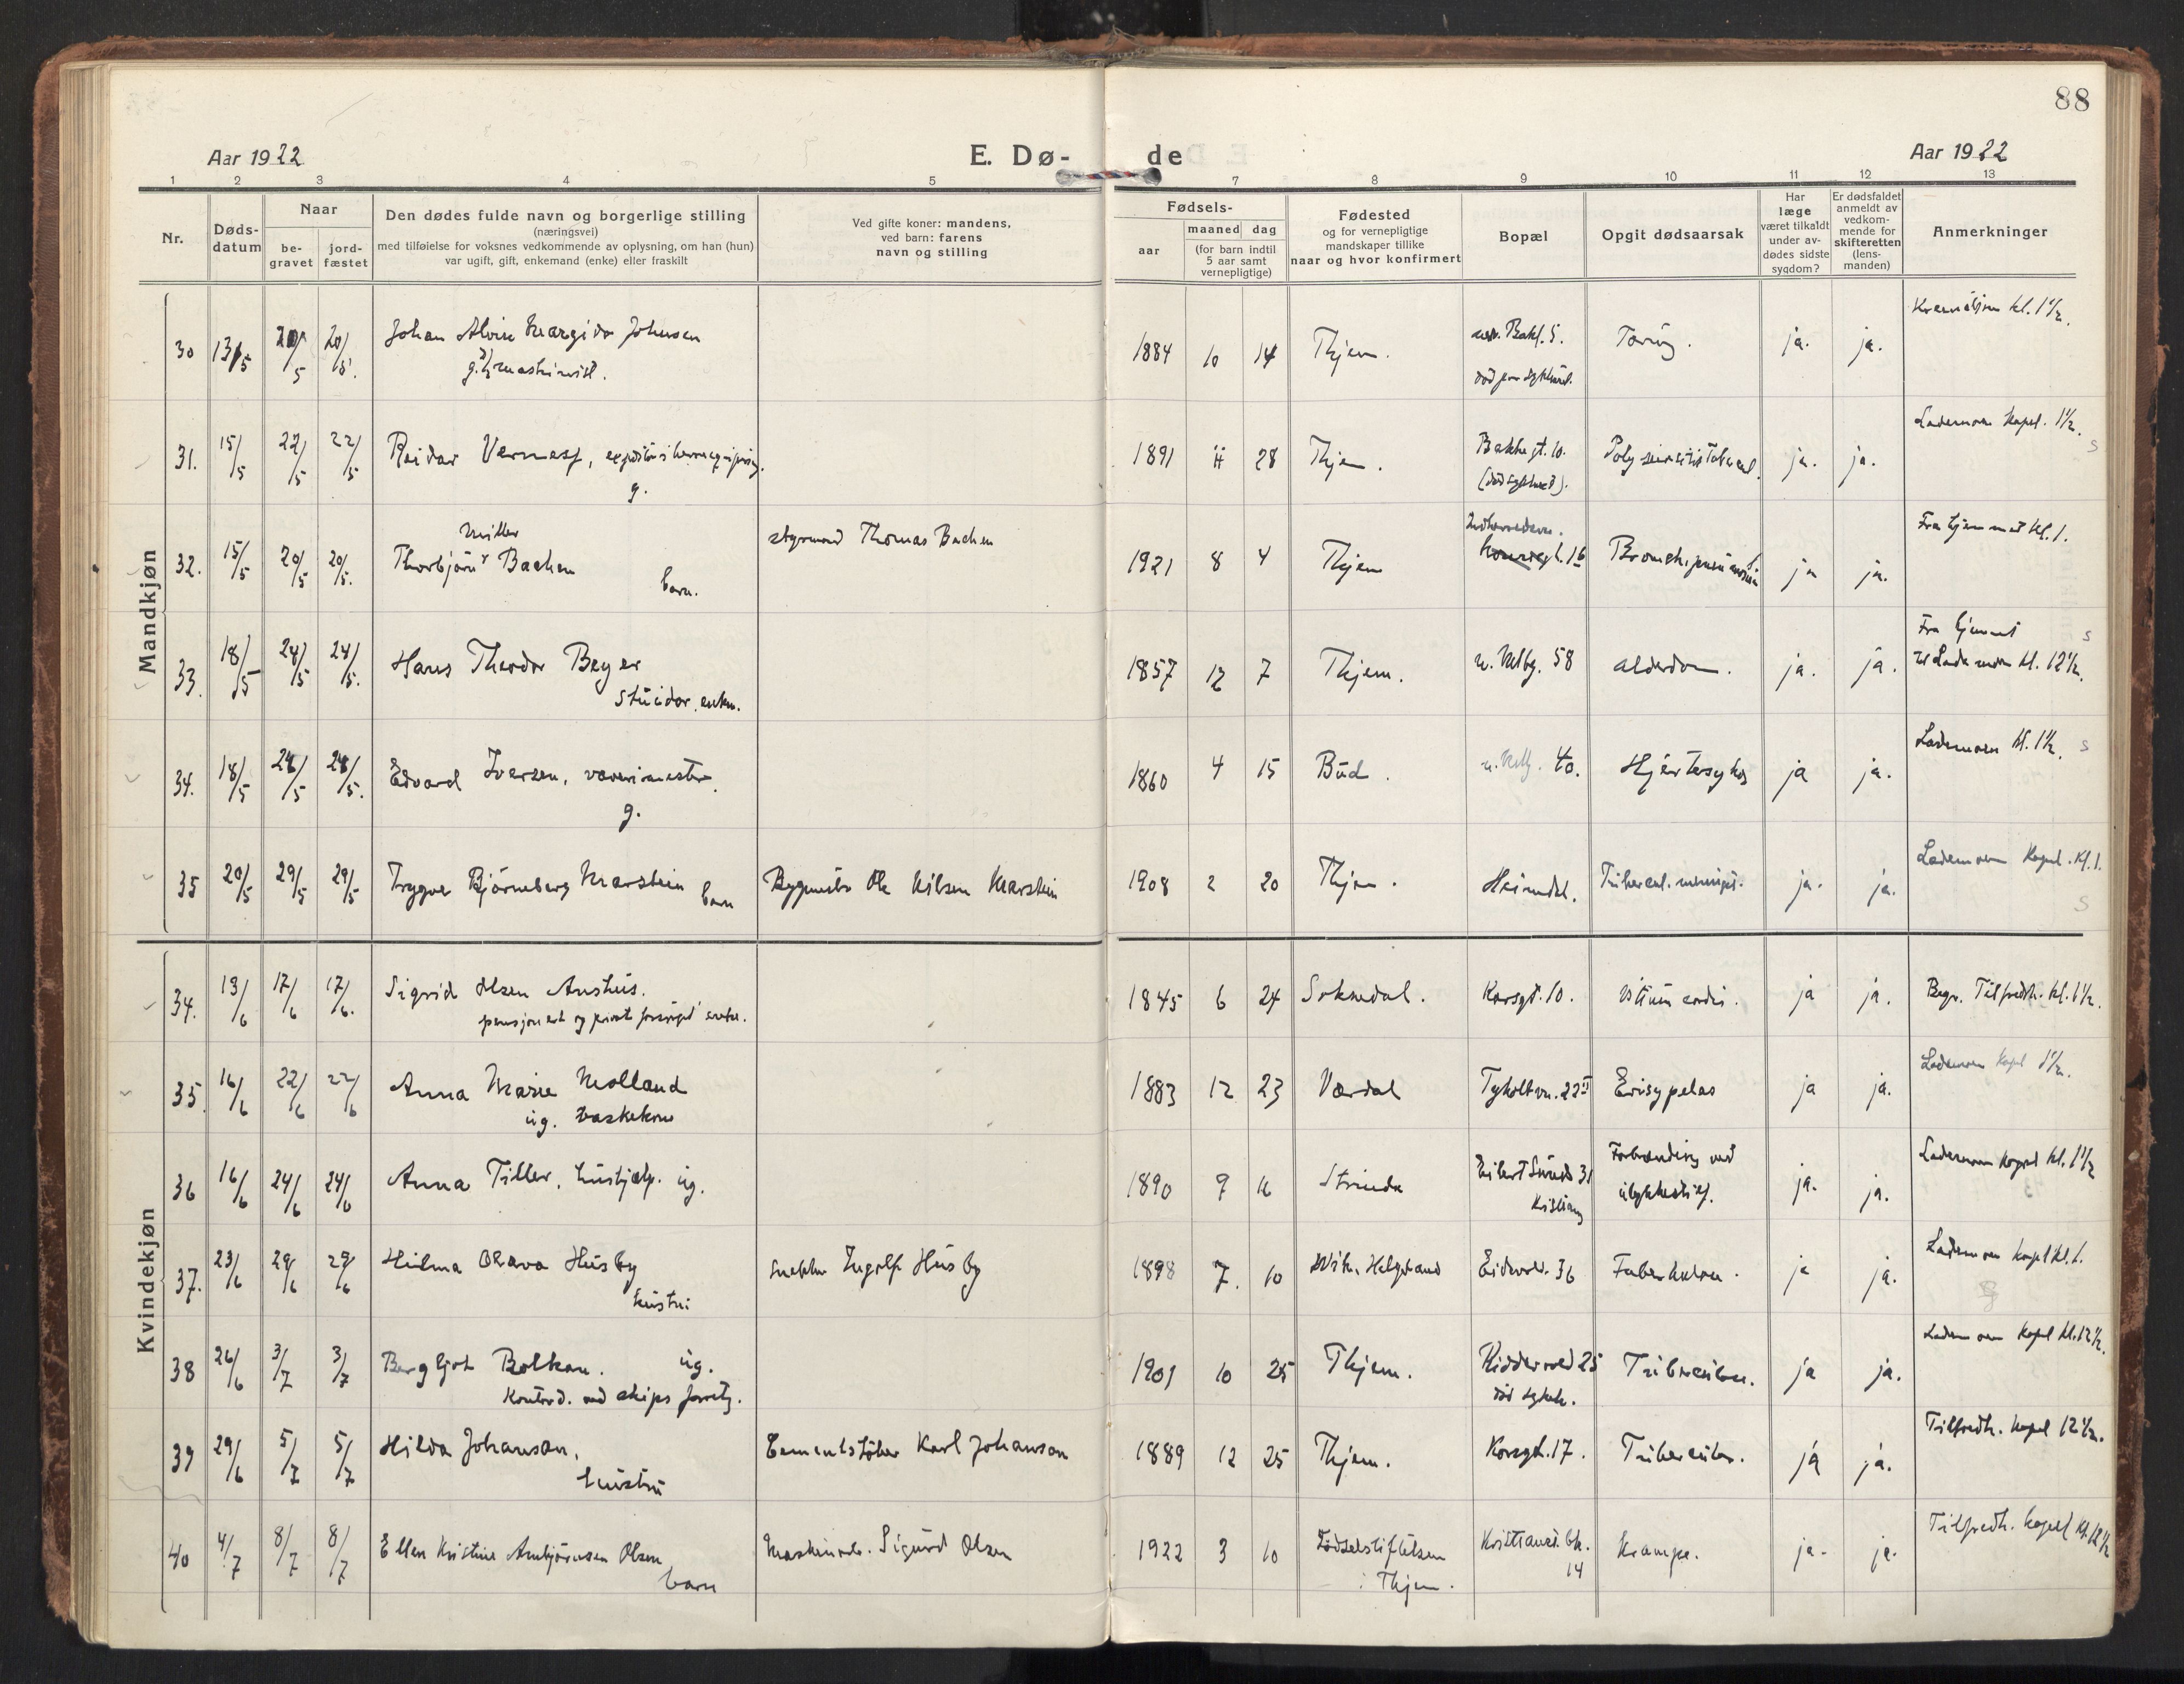 88
Aar 1922
E. Dø-
de
Aar 1922
1 2 3 4 5 7 8 9 10 11 12 13
Nr.
Døds-
datum
Naar
be-
gravet
jord-
fæstet
Den dødes fulde navn og borgerlige stilling
(næringsvei)
med tilføielse for voksnes vedkommende av oplysning, om han (hun)
var ugift, gift, enkemand (enke) eller fraskilt
Ved gifte koner: mandens,
ved barn: farens
navn og stilling
Fødsels-
aar
maaned dag
(for barn indtil
5 aar samt
vernepligtige)
Fødested
og for vernepligtige
mandskaper tillike
naar og hvor konfirmert
Bopæl
Opgit dødsaarsak
Har
læge
været tilkaldt
under av-
dødes sidste
sygdom?
Er dødsfaldet
anmeldt av
vedkom-
mende for
skifteretten
(lens-
manden)
Anmerkninger
Mandkjøn
30 13/5 20/5 20/5 Johan Alvin Margido Johnsen 1884 10 14 Thjem. Bakl. 5. ja. ja. kl. 1 1/2.
maskinist.
31. 15/5 22/5 22/5 Reidar Verness, 1891 11 28 Thjem. Bakke gt. 10. ja. ja. Lademoen Kapel. 1 1/2. S
g.
32. 15/5 20/5 20/5. Thorbjørn Müller Bachen styrmand Thomas Bachen 1921 8 4 Thjem 16 Bronch. pneumoni ja ja. Fra hjemmet kl. 1.
barn.
33. 18/5 24/5 24/5. Hans Theodor Beyer 1857 12 7 Thjem. n. Mølbg. 58 alderdom. ja. ja. Fra hjemmet S
Stuidor, enkm. til Lademoen kl. 12 1/2.
34. 18/5 24/5 24/5. Edvard Iversen, vævimester. 1860 4 15 Bud. 40. Hjertesykd ja ja. Lademoen kl. 1 1/2. S
g.
35 20/5 29/5 29/5 Trygve Bjørneberg Marstein barn Bygmestr Ole Nilsen Marstein 1908 2 20 Thjem. Heimdal. Tubercul. meningit. ja. ja. Lademoen Kapel. Kl. 1.
S
Kvindekjøn
34. 13/6 17/6 17/6. Sigrid Olsen Aushus. 1845 6 24 Soknedal. Korsgt. 10. Vitium cordis. ja ja. Begr. Tilfredsh. kl. 1 1/2.
pensjonert og privat forsørget enke.
35. 16/6 22/6 22/6 Anna Marie Molland 1883 12 23 Værdal Tyholtvn. 22 II Erisypelas ja ja. Lademoen Kapel 1 1/2.
ug. vaskekone
36 16/6 24/6 24/6 Anna Tiller, hushjælp. ug. 1890 9 16 Strinda Eilert Sunds 31 Forbrænding ved ja. ja. Lademoen Kapel kl. 1 1/2
Kristiania ulykkestilf.
37. 23/6 29/6 29/6 Hilma Olava Husby snekker Ingolf Husby 1898 7. 10 Helgeland Eidsvolds. 36 Tuberkulose. ja ja. Lademoen Kapel kl. 1.
hustru
38 26/6 3/7 3/7 Bergljot Bolkan. ug. 1901 10 25 Thjem. Riddervold 25 Tuberculose. ja ja. Lademoen Kapel kl. 12 1/2.
Kontord. ved skips forretg. død sykeh.
39 29/6 5/7 5/7 Hilda Johansson, Cementstøber Karl Johansson 1889 12 25 Thjem. Korsgt. 17. Tubercul. ja ja. Tilfredh. Kapel 12 1/2.
hustru
40 4/7 8/7 8/7 Ellen Kristine Arnbjørnsen Olsen Maskinarb. Sigurd Olsen 1922 3 10 Fødselsstiftelsen Kristiansd. bk. Krampe. ja. ja. Tilfredh. Kapel kl. 12 1/2
barn i Thjem. 14